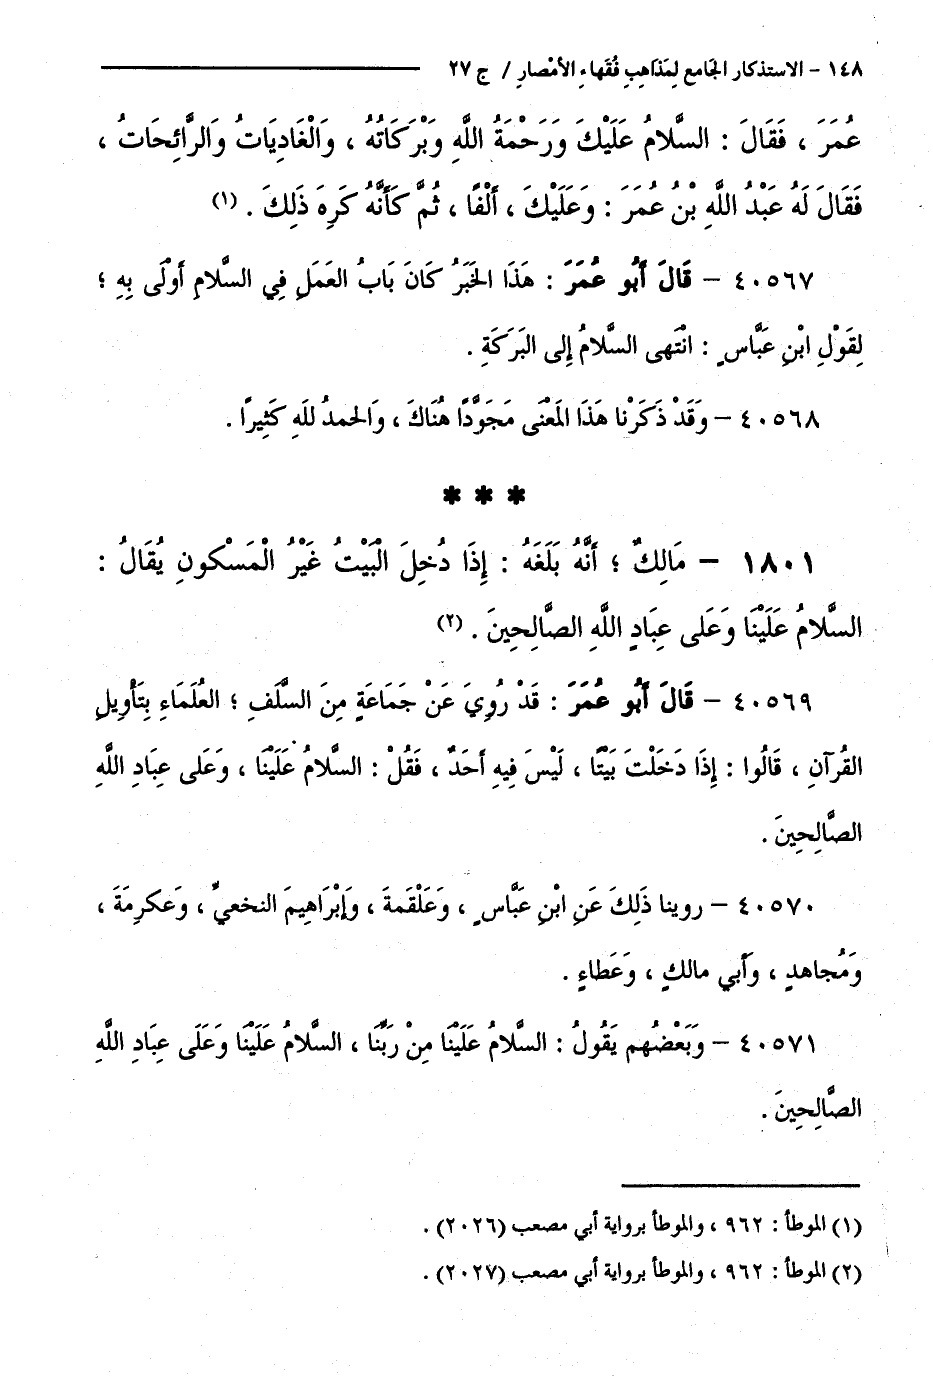 ١٤٨ - الاستذكار الجَامع لِمَذاهِبِ فُقَهاءِ الأمْصارِ / ج ٢٧
عُمَرَ ، فَقَالَ : السَّلامُ عَلَيْكَ وَرَحْمَةُ اللَّهِ وَبْرَكَاتُهُ ، وَالْغَادِيَاتُ وَالرَّائِحَاتُ ،
فَقَالَ لَهُ عَبْدُ اللَّهِ بْنُ عُمَرَ : وَعَلَيْكَ ، أَلْفًا ، ثُمَّ كَأَنَّهُ كَرِهَ ذَلِكَ . (١)
٤٠٥٦٧ - قَالَ أَبُو عُمَرَ : هَذَا الخَبَرُ كَانَ بَابُ العَمَلِ فِي السَّلامِ أَوْلَى بِهِ ؛
لِقَوْلِ ابْنِ عَبَّاسٍ : انْتَهى السَّلامُ إِلى البَرَكَةِ .
٤٠٥٦٨ - وَقَدْ ذَكَرْنا هَذَا المَعْنَى مَجَوَّدًا هُنَاكَ ، وَالحمدُ للَّهِ كَثِيرًا .
* * *
١٨٠١ - مَالِكٌ ؛ أَنَّهُ بَلَغَهُ : إِذَا دُخِلَ الْبَيْتُ غَيْرُ الْمَسْكُونِ يُقَالُ :
السَّلامُ عَلَيْنَا وَعَلَى عِبَادِ اللَّهِ الصَّالِحِينَ . (٢)
٤٠٥٦٩ - قَالَ أَبُو عُمَرَ : قَدْ رُوِيَ عَنْ جَمَاعَةٍ مِنَ السَّلَفِ ؛ العُلَمَاءِ بِتَأْوِيلِ
القُرآنِ ، قَالُوا : إِذَا دَخَلْتَ بَيْتًا ، لَيْسَ فِيهِ أَحَدٌ ، فَقُلْ : السَّلامُ عَلَيْنَا ، وَعَلى عِبَادِ اللَّهِ
الصَّالِحِينَ .
٤٠٥٧٠ - روينا ذَلِكَ عَنِ ابْنِ عَبَّاسٍ ، وَعَلْقَمةَ ، وَإِبْرَاهِيمَ النخعيِّ ، وَعكرِمَةَ ،
وَمُجاهدٍ ، وَأَبي مالكٍ ، وَعَطاءٍ .
٤٠٥٧١ - وَبَعْضُهم يَقُولُ : السَّلامُ عَلَيْنَا مِنْ رَبَّنَا ، السَّلامُ عَلَيْنَا وَعَلَى عِبَادِ اللَّهِ
الصَّالِحِينَ .
(١) الموطأ : ٩٦٢ ، والموطأ برواية أبي مصعب (٢٠٢٦) .
(٢) الموطأ : ٩٦٢ ، والموطأ برواية أبي مصعب (٢٠٢٧) .